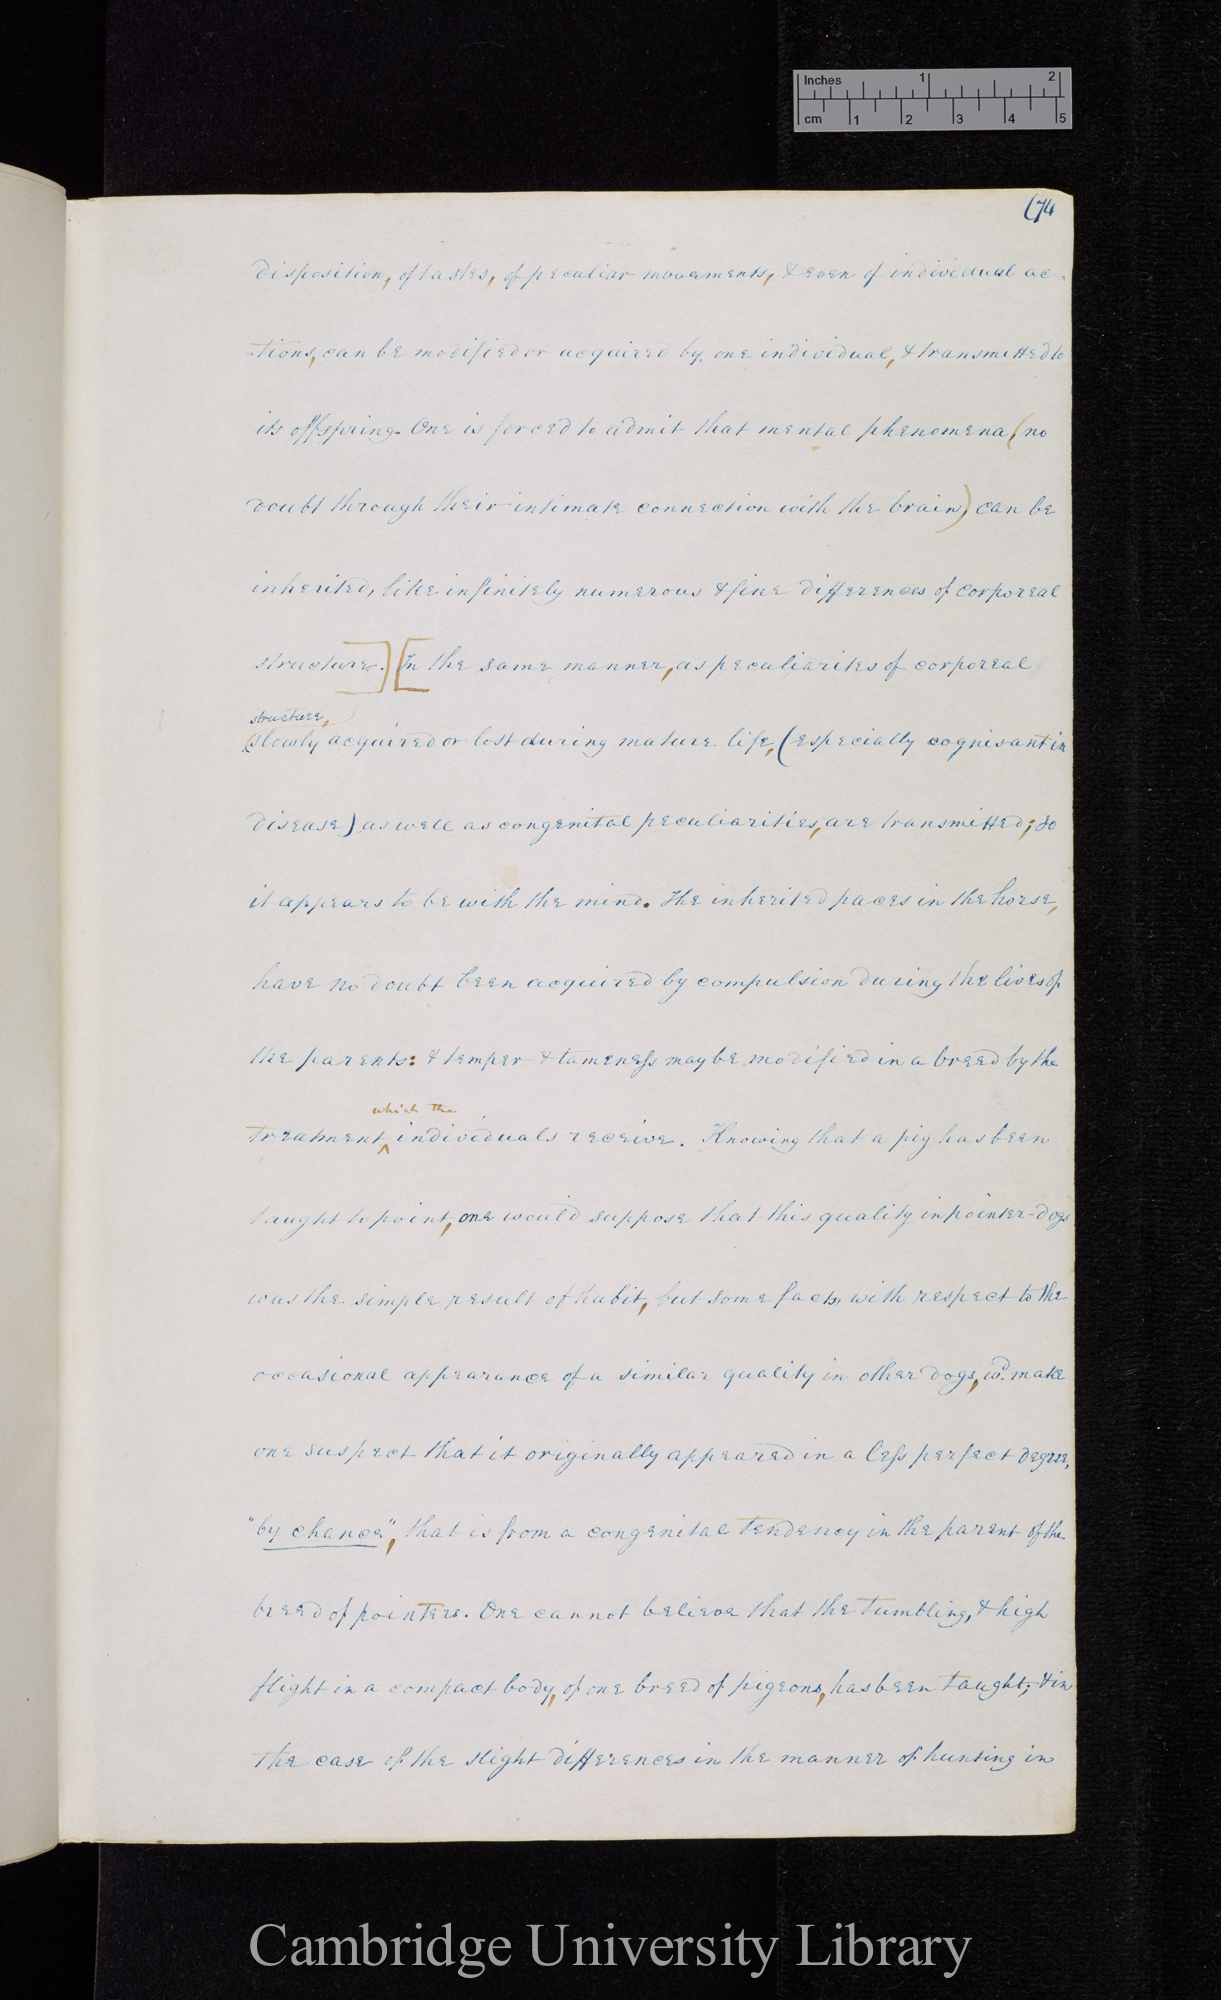 Inches 1 2
cm 1 2 3 4 5
(74
disposition, of tastes, of peculiar movements, & even of individual ac-
-tions, can be modified or acquired by one individual, & transmitted to
its offspring. One is forced to admit that mental phenomena (no
doubt through their intimate connection with the brain) can be
inherited, like infinitely numerous & fine differences of corporeal
structure.] [In the same manner, as peculiarites of corporeal
structure,
(slowly acquired or lost during mature life, (especially cognisant in
disease) as well as congenital peculiarities, are transmitted; so
it appears to be with the mind. The inherited paces in the horse,
have no doubt been acquired by compulsion during the lives of
the parents: & temper & tameness may be modified in a breed by the
which the
treatment ^ individuals receive. Knowing that a pig has been
taught to point, one would suppose that this quality in pointer-dogs
was the simple result of habit, but some facts, with respect to the
occasional appearance of a similar quality in other dogs, wd. make
one suspect that it originally appeared in a less perfect degree,
"by chance", that is from a congenital tendency in the parent of the
breed of pointers. One cannot believe that the tumbling, & high
flight in a compact body, of one breed of pigeons, has been taught; & in
the case of the slight differences in the manner of hunting in
Cambridge University Library